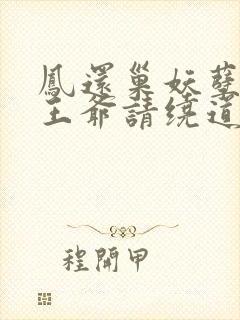 鳳還巢妖孽
王爺請繞道
程開甲